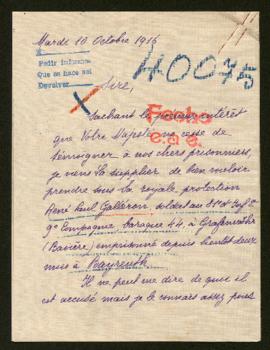 Mardi 10 Octobre 1916
Pedir informe
Que se hace así
Devolver
40075
Sire,
Fecho
Sachant le précieux intérêt
que Votre Majesté ne cesse de
témoigner à nos chers prisonniers,
je viens la supplier de bien vouloir
prendre sous sa royale protection
René Paul Galleron, soldat au
9e Compagnie baraque 44, à Grafenwöhr
(Bavière) emprisonné depuis bientôt deux
mois à Bayreuth.
Il ne peut me dire de quoi il
est accusé mais je le connais assez pour